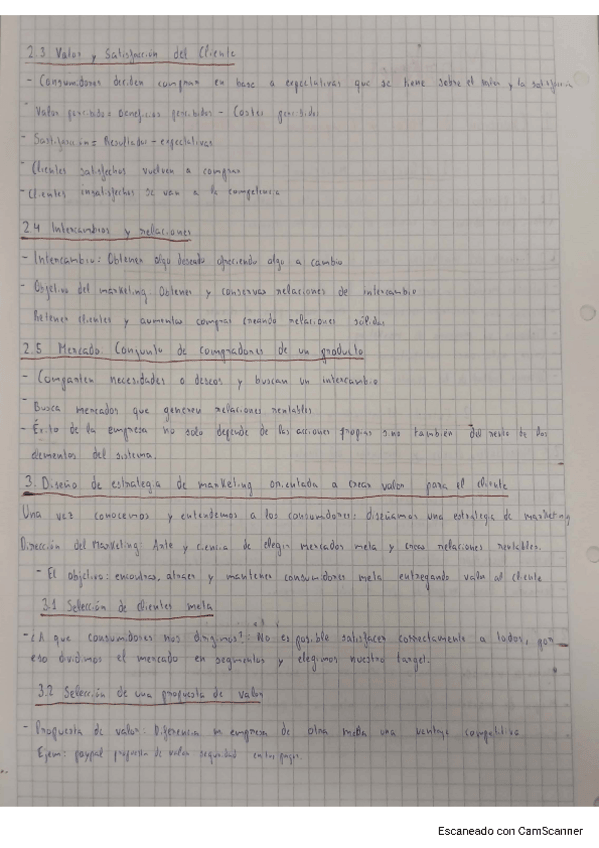 2.3 Valor y Satisfacción del Cliente
- Consumidores deciden comprar en base a expectativas que se tiene sobre el valor y la satisfacción
- Valor percibido = Beneficios percibidos - Costes percibidos
- Satisfacción = Resultados - expectativas
- Clientes satisfechos vuelven a comprar
- Clientes insatisfechos se van a la competencia
2.4 Intercambios y relaciones
- Intercambio: Obtener algo deseado ofreciendo algo a cambio
- Objetivo del marketing: Obtener y conservar relaciones de intercambio
Retener clientes y aumentar compras creando relaciones sólidas
2.5 Mercado Conjunto de compradores de un producto
- Comparten necesidades o deseos y buscan un intercambio
- Busca mercados que generen relaciones rentables
- Éxito de la empresa no solo depende de las acciones propias sino también del resto de los
elementos del sistema.
3. Diseño de estrategia de marketing orientada a crear valor para el cliente
Una vez conocemos y entendemos a los consumidores: diseñamos una estrategia de marketing
Dirección del Marketing: Arte y ciencia de elegir mercados meta y crear relaciones rentables.
- El objetivo: encontrar, atraer y mantener consumidores meta entregando valor al cliente
3.1 Selección de clientes meta
- ¿A que consumidores nos dirigimos?: No es posible satisfacer correctamente a todos, por
eso dividimos el mercado en segmentos y elegimos nuestro target.
3.2 Selección de una propuesta de valor
- Propuesta de valor: Diferencia empresa de otra media una ventaja competitiva
Ejem: paypal propuesta de valor seguridad en los pagos.
Escaneado con CamScanner